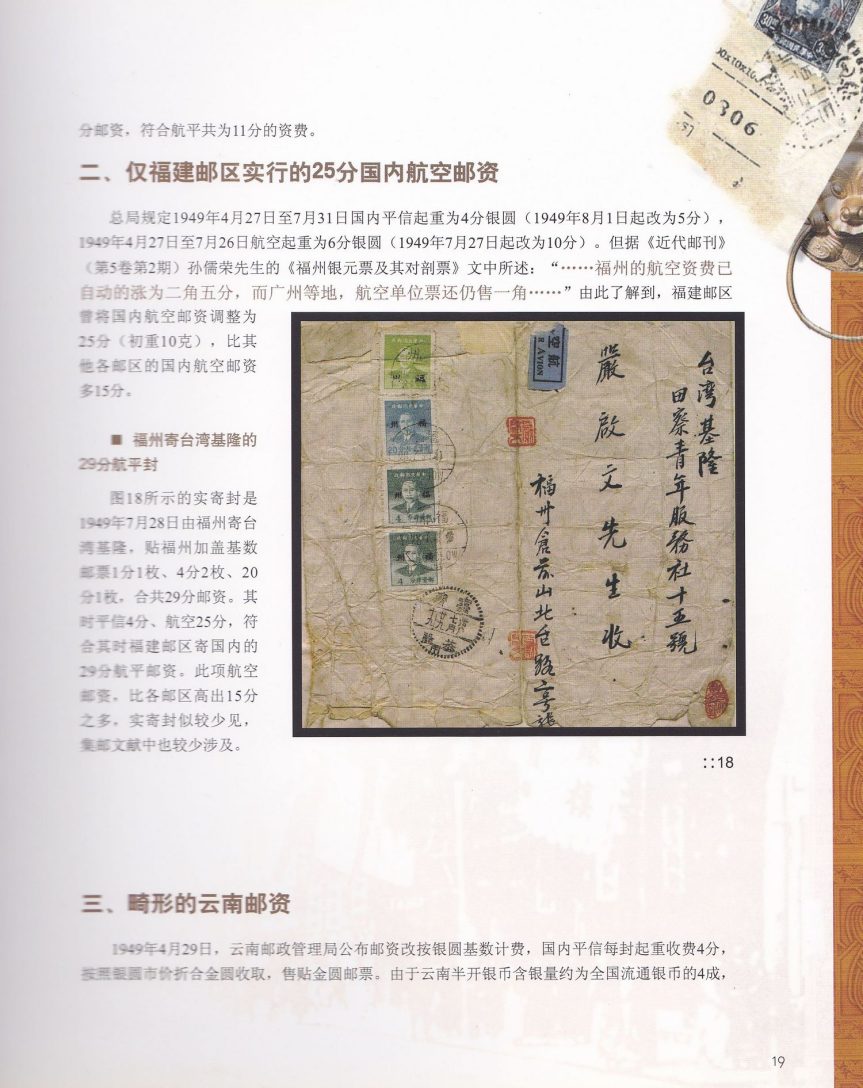 0306
分邮资，符合航平共为11分的资费。
二、仅福建邮区实行的25分国内航空邮资
总局规定1949年4月27日至7月31日国内平信起重为4分银圆（1949年8月1日起改为5分），
1949年4月27日至7月26日航空起重为6分银圆（1949年7月27日起改为10分）。但据《近代邮刊》
（第5卷第2期）孙儒荣先生的《福州银元票及其对剖票》文中所述：“……福州的航空资费已
自动的涨为二角五分，而广州等地，航空单位票还仍售一角……”由此了解到，福建邮区
曾将国内航空邮资调整为
25分（初重10克），比其
他各邮区的国内航空邮资
多15分。
■ 福州寄台湾基隆的
29分航平封
图18所示的实寄封是
1949年7月28日由福州寄台
湾基隆，贴福州加盖基数
邮票1分1枚、4分2枚、20
分1枚，合共29分邮资。其
时平信4分、航空25分，符
合其时福建邮区寄国内的
29分航平邮资。此项航空
邮资，比各邮区高出15分
之多，实寄封似较少见，
集邮文献中也较少涉及。
台湾基隆
田寮青年服務社十五號
嚴啟文先生收
福州倉前山北仓路
空航
R AVION
::18
三、畸形的云南邮资
1949年4月29日，云南邮政管理局公布邮资改按银圆基数计费，国内平信每封起重收费4分，
按照银圆市价折合金圆收取，售贴金圆邮票。由于云南半开银币含银量约为全国流通银币的4成，
19